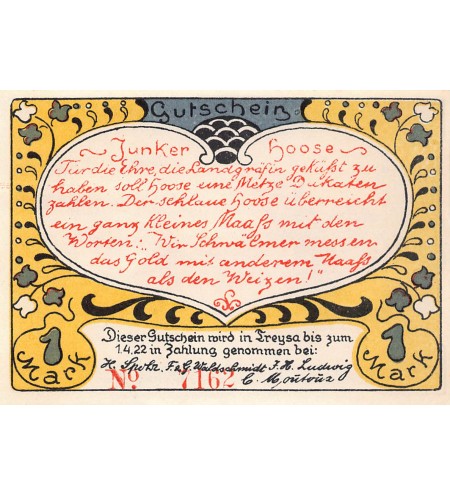 Gutschein
Junker Hoose
Für die Ehre, die Landgräfin geküßt zu
haben soll Hoose eine Metze Dukaten
zahlen. Der schlaue Hoose überreicht
ein ganz kleines Maaß mit den
Worten: "Wir Schwälmer messen
das Gold mit anderem Maaß
als den Weizen!"
Dieser Gutschein wird in Treysa bis zum
1.4.22 in Zahlung genommen bei:
H. Spohr. F. & G. Waldschmidt J. H. Ludwig
C.
No. 7162
1 Mark
1 Mark